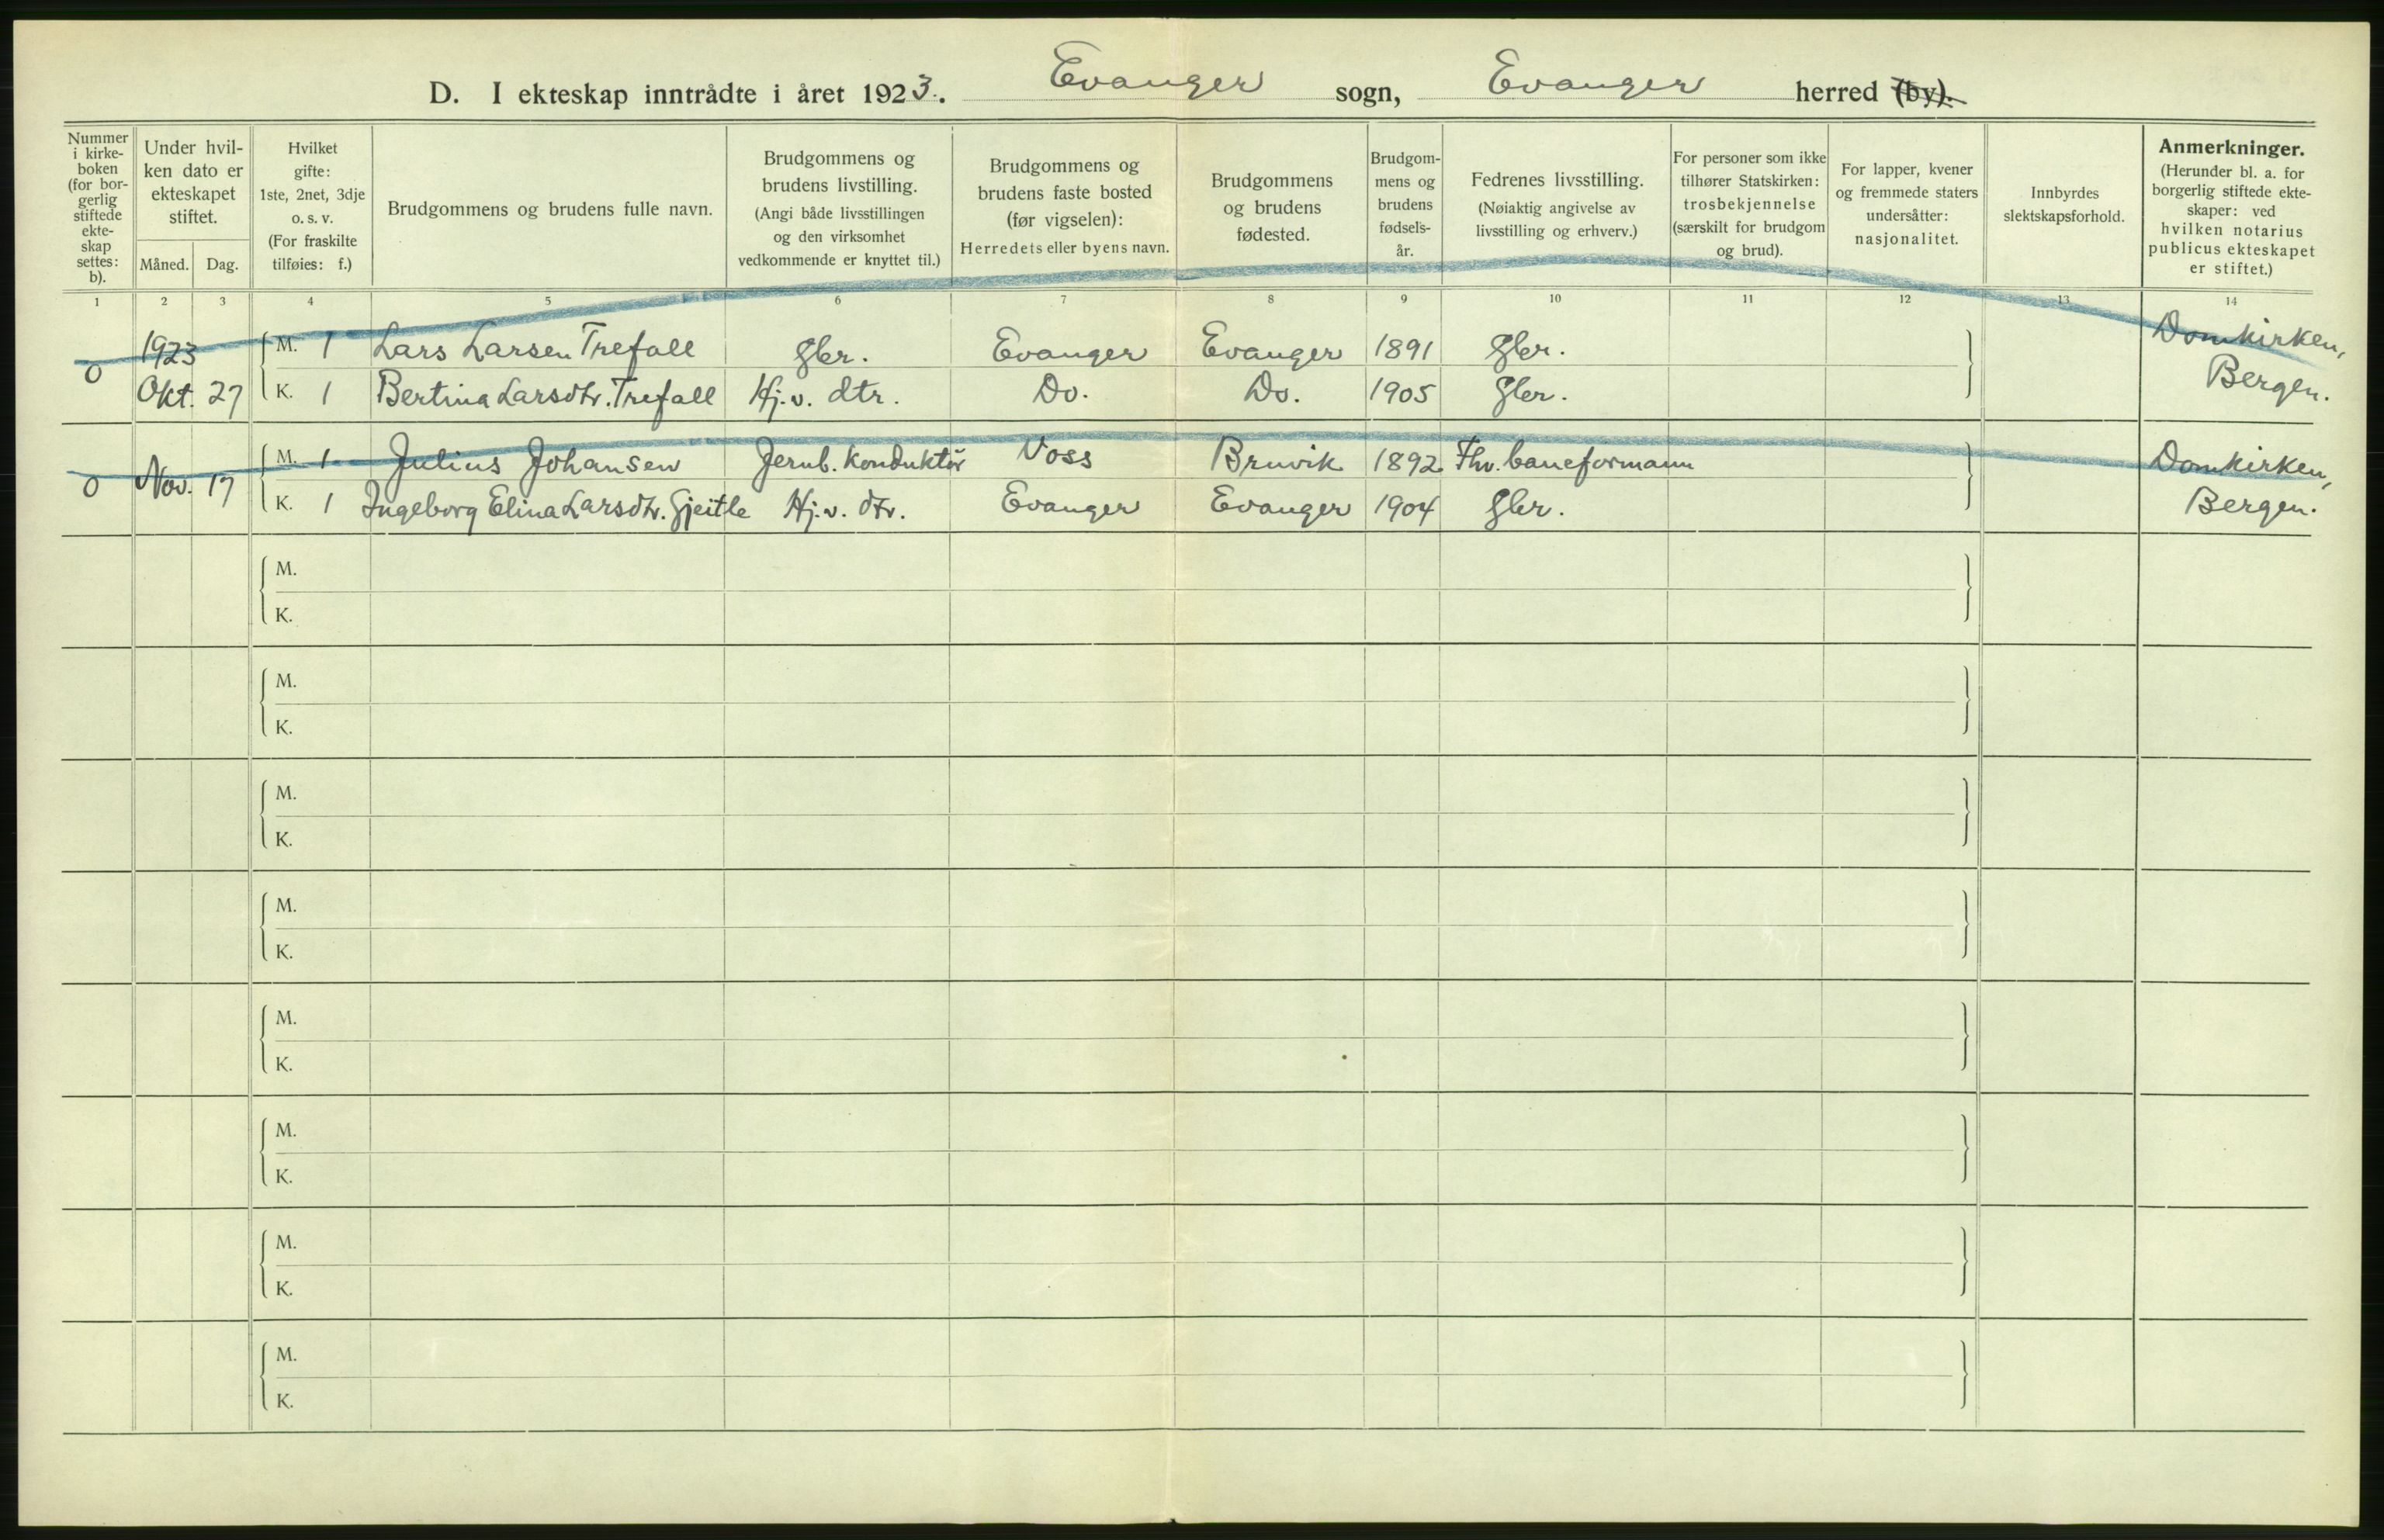 D. I ekteskap inntrådte i året 1923. Evanger sogn, Evanger herred (by).
Nummer i kirke- boken (for bor- gerlig stiftede ekte- skap settes: b).
Under hvil- ken dato er ekteskapet stiftet.
Måned. Dag.
Hvilket gifte: 1ste, 2net, 3dje o. s. v. (For fraskilte tilføies: f.)
Brudgommens og brudens fulle navn.
Brudgommens og brudens livstilling. (Angi både livsstillingen og den virksomhet vedkommende er knyttet til.)
Brudgommens og brudens faste bosted (før vigselen): Herredets eller byens navn.
Brudgommens og brudens fødested.
Brudgom- mens og brudens fødsels- år.
Fedrenes livsstilling. (Nøiaktig angivelse av livsstilling og erhverv.)
For personer som ikke tilhører Statskirken: trosbekjennelse (særskilt for brudgom og brud).
For lapper, kvener og fremmede staters undersåtter: nasjonalitet.
Innbyrdes slektskapsforhold.
Anmerkninger. (Herunder bl. a. for borgerlig stiftede ekte- skaper: ved hvilken notarius publicus ekteskapet er stiftet.)
1 2 3 4 5 6 7 8 9 10 11 12 13 14
1923 M. 1 Lars Larsen Trefall gbr. Evanger Evanger 1891 gbr. Domkirken,
0 Okt. 27 K. 1 Bertina Larsdtr. Trefall Hj.v. dtr. Do. Do. 1905 gbr. Bergen.
M. 1 Julius Johansen Jernb. konduktör Voss Bruvik 1892 Fhv. baneformann Domkirken,
0 Nov. 17 K. 1 Ingeborg Elina Larsdtr. Gjeitle Hj.v. dtr. Evanger Evanger 1904 gbr. Bergen.
M.
K.
M.
K.
M.
K.
M.
K.
M.
K.
M.
K.
M.
K.
M.
K.